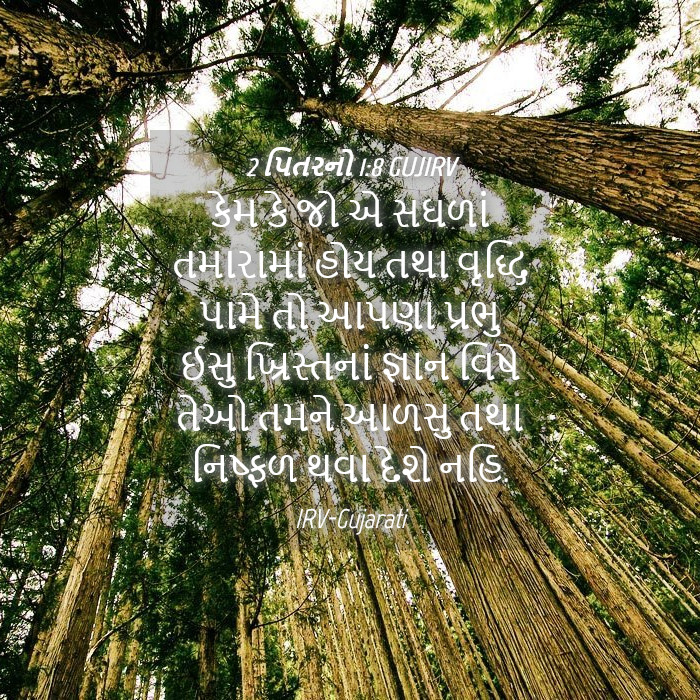 2 પિતરનો 1:8 GUJIRV
કેમ કે જો એ સઘળાં
તમારામાં હોય તથા વૃદ્ધિ
પામે તો આપણા પ્રભુ
ઈસુ ખ્રિસ્તનાં જ્ઞાન વિષે
તેઓ તમને આળસુ તથા
નિષ્ફળ થવા દેશે નહિ.
IRV-Gujarati